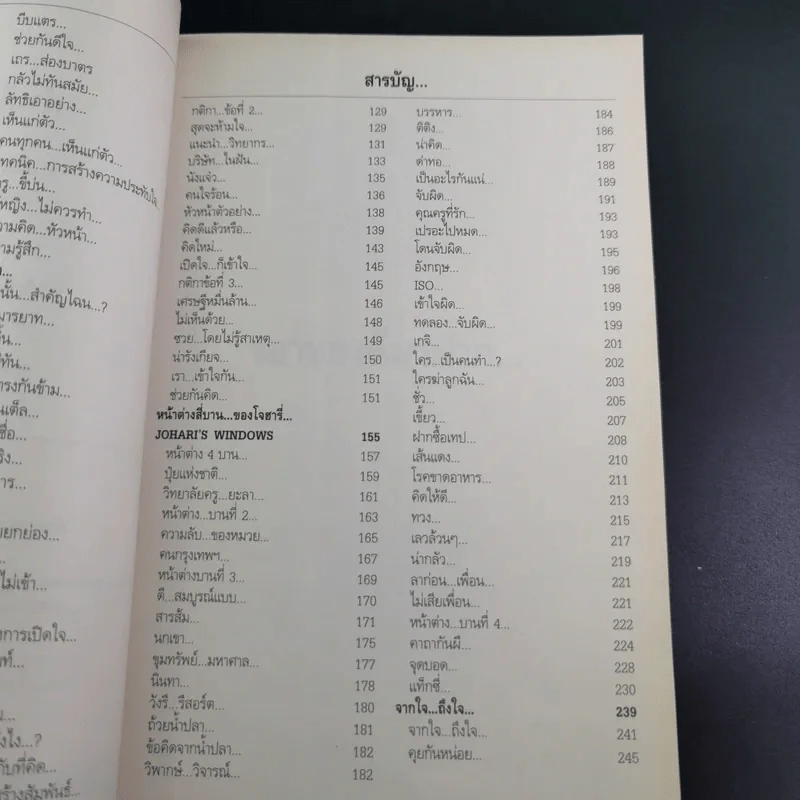 บีบแตร...
ช่วยกันดีใจ...
เถร...ส่องบาตร
กลัวไม่ทันสมัย...
ลัทธิเอาอย่าง...
เห็นแก่ตัว...
คนทุกคน...เห็นแก่ตัว...
ทคนิค...การสร้างความประทับใจ...
รู...ขี้บ่น...
หญิง...ไม่ควรทำ...
วามคิด...หัวหน้า...
ามรู้สึก...
นั้น...สำคัญไฉน...?
มารยาท...
ทัน...
ารงกันข้าม...
นเต็ล...
ชื่อ...
ริง...
าร...
ยยกย่อง...
ไม่เช้า...
งการเปิดใจ...
ังไง...?
ับที่คิด...
ร้างสัมพันธ์...
สารบัญ...
กติกา...ข้อที่ 2... 129
สุดจะห้ามใจ... 129
แนะนำ...วิทยากร... 131
บริษัท...ในฝัน... 133
นังแจ๋ว... 135
คนใจร้อน... 136
หัวหน้าตัวอย่าง... 138
คิดดีแล้วหรือ... 139
คิดใหม่... 143
เปิดใจ...ก็เข้าใจ... 145
กติกาข้อที่ 3... 145
เศรษฐีหมื่นล้าน... 146
ไม่เห็นด้วย... 148
ซวย...โดยไม่รู้สาเหตุ... 149
น่ารังเกียจ... 150
เรา...เข้าใจกัน... 151
ช่วยกันคิด... 151
หน้าต่างสี่บาน...ของโจฮารี่...
JOHARI'S WINDOWS 155
หน้าต่าง 4 บาน... 157
ปุ๋ยแห่งชาติ... 159
วิทยาลัยครู...ยะลา... 161
หน้าต่าง...บานที่ 2... 163
ความลับ...ของหมวย... 165
คนกรุงเทพฯ... 167
หน้าต่างบานที่ 3... 169
ดี...สมบูรณ์แบบ... 170
สารส้ม... 171
นกเขา... 175
ขุมทรัพย์...มหาศาล... 177
นินทา... 178
วังรี...รีสอร์ต... 180
ถ้วยน้ำปลา... 181
ข้อคิดจากน้ำปลา... 182
วิพากษ์...วิจารณ์... 182
บรรหาร... 184
ติติง... 186
น่าคิด... 187
ด่าทอ... 188
เป็นอะไรกันแน่... 189
จับผิด... 191
คุณครูที่รัก... 193
เปรอะไปหมด... 193
โดนจับผิด... 195
อังกฤษ... 196
ISO... 198
เข้าใจผิด... 199
ทดลอง...จับผิด... 199
เกจิ... 201
ใคร...เป็นคนทำ...? 202
ใครฆ่าลูกฉัน... 203
ชั่ว... 205
เขี้ยว... 207
ฝากซื้อเทป... 208
เส้นแดง... 210
โรคขาดอาหาร... 211
คิดให้ดี... 213
ทวง... 215
เลวล้วนๆ... 217
น่ากลัว... 219
ลาก่อน...เพื่อน... 221
ไม่เสียเพื่อน... 221
หน้าต่าง...บานที่ 4... 222
คาถากันผี... 224
จุดบอด... 228
แท็กซี่... 230
จากใจ...ถึงใจ... 239
จากใจ...ถึงใจ... 241
คุยกันหน่อย... 245